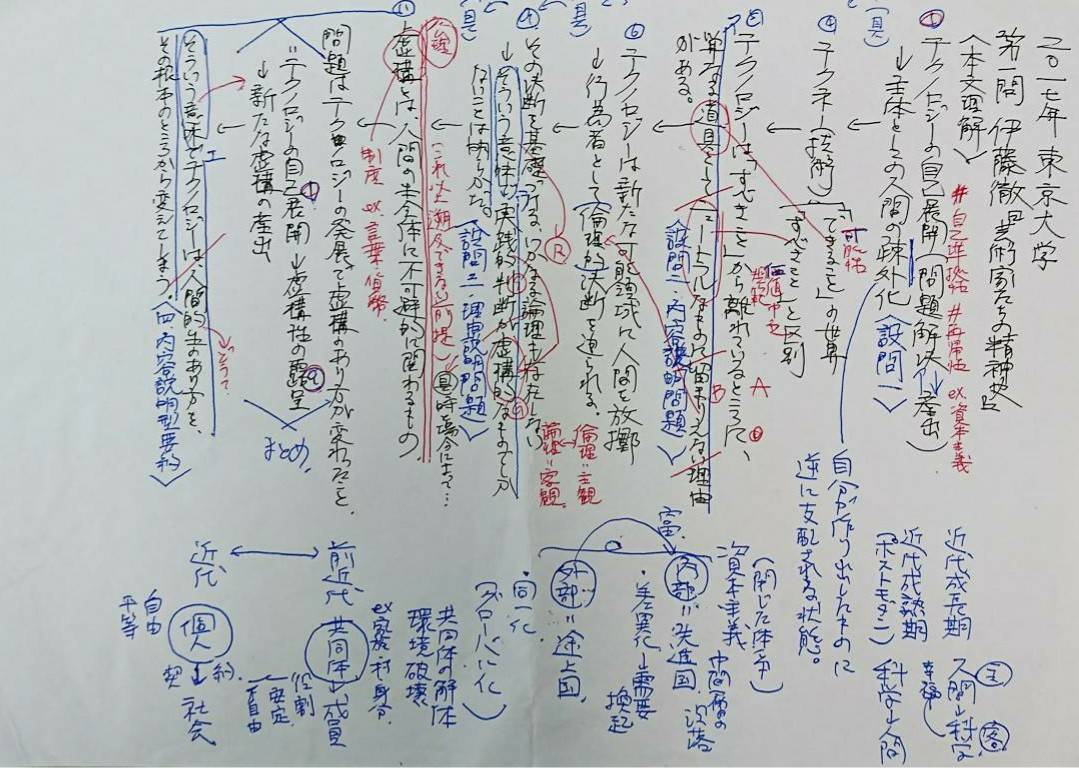 二〇一七年 東京大学
第一問 伊藤徹『芸術家たちの精神史』
〈本文理解〉
#自己準拠性 #再帰性 ex.資本主義
① テクノロジーの自己展開(問題解決→産出)
↓主体としての人間の疎外化〈設問一〉
(具)
④ テクネー(技術)「できること」の世界
可能性
「すべきこと」と区別
⑤ テクノロジーは「すべきこと」から離れているところに、
価値中立
客観
A
単なる道具としてニュートラルなものに留まりえない理由
がある。
B
〈設問二・内容説明問題〉
⑥ テクノロジーは新たな可能領域に人間を放擲
↓行為者として倫理的決断を迫られる。
倫理=主観
論理=客観
(具)
その決断を基礎づける、いかなる論理も存在しない
↓そういう意味で実践的判断が虚構的なものでしか
ないことは明らかだ。
〈設問三・理由説明問題〉
(具)
(これ以上遡及できない前提)
具 時と場合によって…
⑪ 虚構とは、人間の生全体に不可避的に関わるもの
制度 ex.言葉・貨幣
問題はテクノロジーの発展で虚構のあり方が変わったこと、
=テクノロジーの自己展開→虚構性の露呈
↓新たな虚構の産出
まとめ
そういう意味でテクノロジーは、人間的生のあり方を、
その根本のところから変えてしまう。〈四・内容説明型要約〉
どうして
近代成長期 人間→科学
主 客
幸福
近代成熟期 科学→人間
(ポストモダン)
自分が作り出したものに
逆に支配される状態。
(閉じた体系)
資本主義 中間層の没落
富
内部=先進国
・差異化→需要
換起
外部=途上国
・同一化
(グローバル化)
共同体の解体
環境破壊
前近代 共同体→成員
ex家族・村・身分
役割
安定
不自由
近代 個人→社会
契約
自由
平等